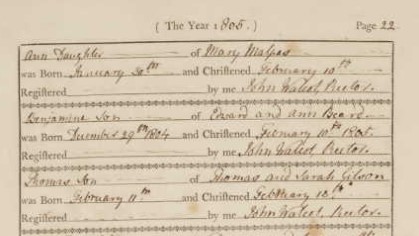 ( The Year 1805. ) Page 22.
Ann Daughter of Mary Malpas
was Born January 20th and Christened February 10th
Registered by me John Waliot Rector.
Benjamine Son of Edward and Ann Beard
was Born December 29th 1804 and Christened February 10th 1805.
Registered by me John Waliot Rector.
Thomas Son of Thomas and Sarah Gibson
was Born February 11th and Christened February
Registered by me John Waliot Rector.